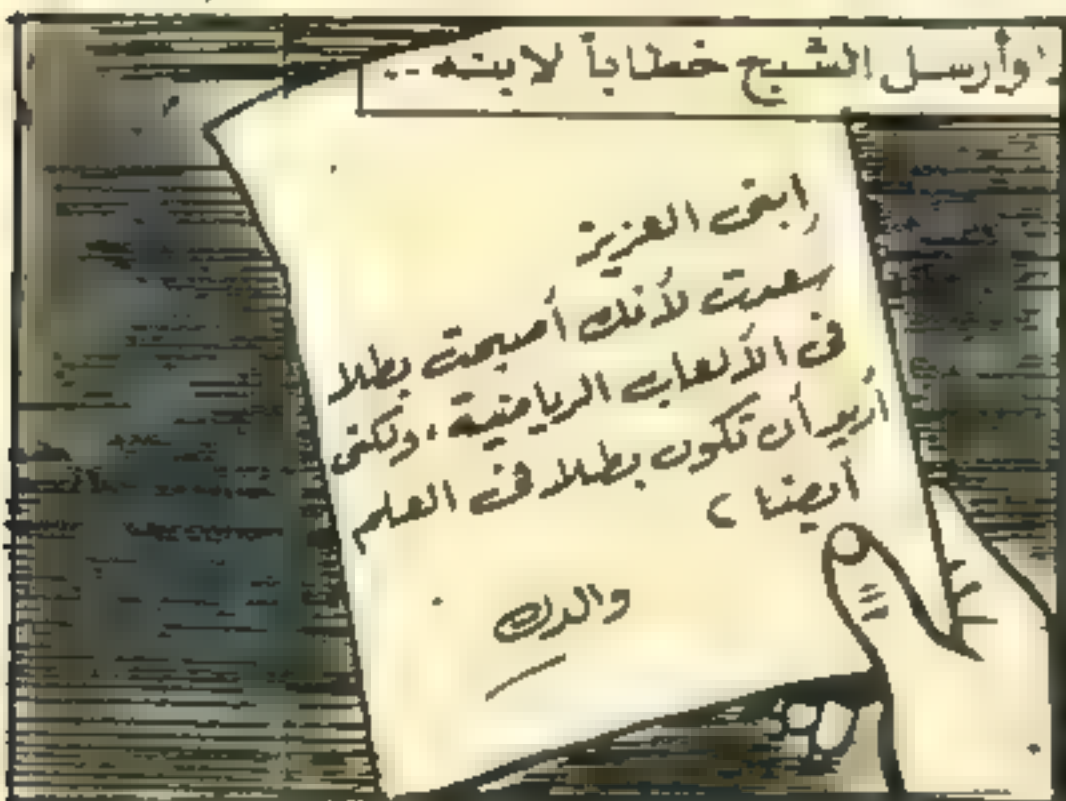 وأرسل الشيخ خطاباً لابنه ..
إبنى العزيز
سعدت لأنك أصبحت بطلا
فى الألعاب الرياضية، ولكنى
أريد أن تكون بطلا فى العلم
أيضا
والدك